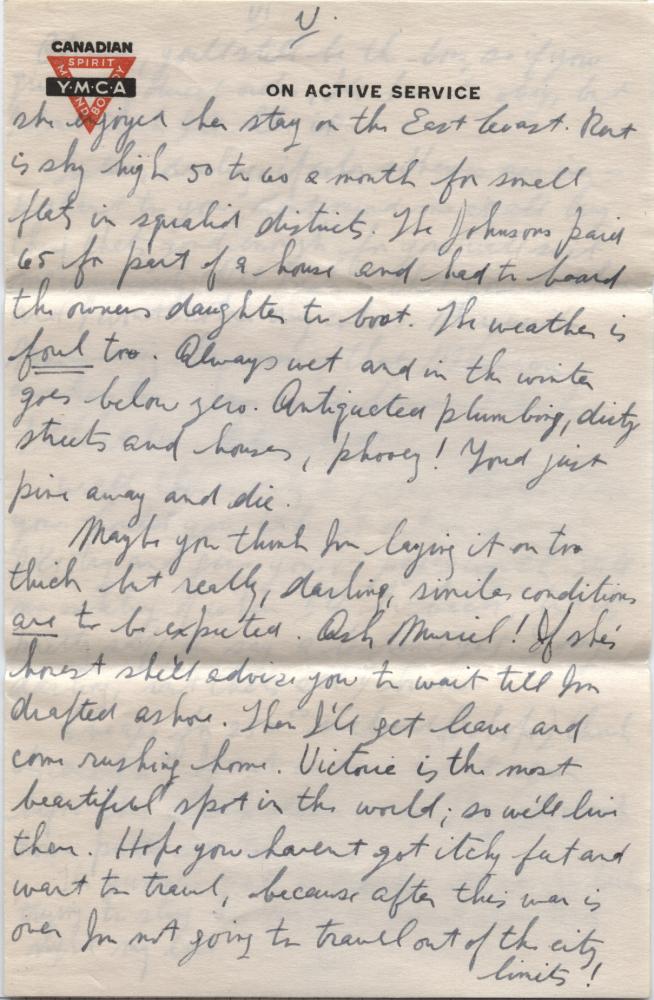 V.
CANADIAN
SPIRIT
Y·M·C·A
MIND BODY
ON ACTIVE SERVICE
she enjoyed her stay on the East Coast. Rent
is sky high 50 to 60 a month for small
flats in squalid districts. The Johnsons paid
65 for part of a house and had to board
the owners daughter to boot. The weather is
foul too. Always wet and in the winter
goes below zero. Antiquated plumbing, dirty
streets and houses, phooey! Youd just
pine away and die.
Maybe you think Im laying it on too
thick but really, darling, similar conditions
are to be expected. Ask Muriel! If she's
honest she'll advise you to wait till Im
drafted ashore. Then I'll get leave and
come rushing home. Victoria is the most
beautiful spot in the world; so we'll live
there. Hope you havent got itchy feet and
want to travel, because after this war is
over Im not going to travel out of the city
limits!